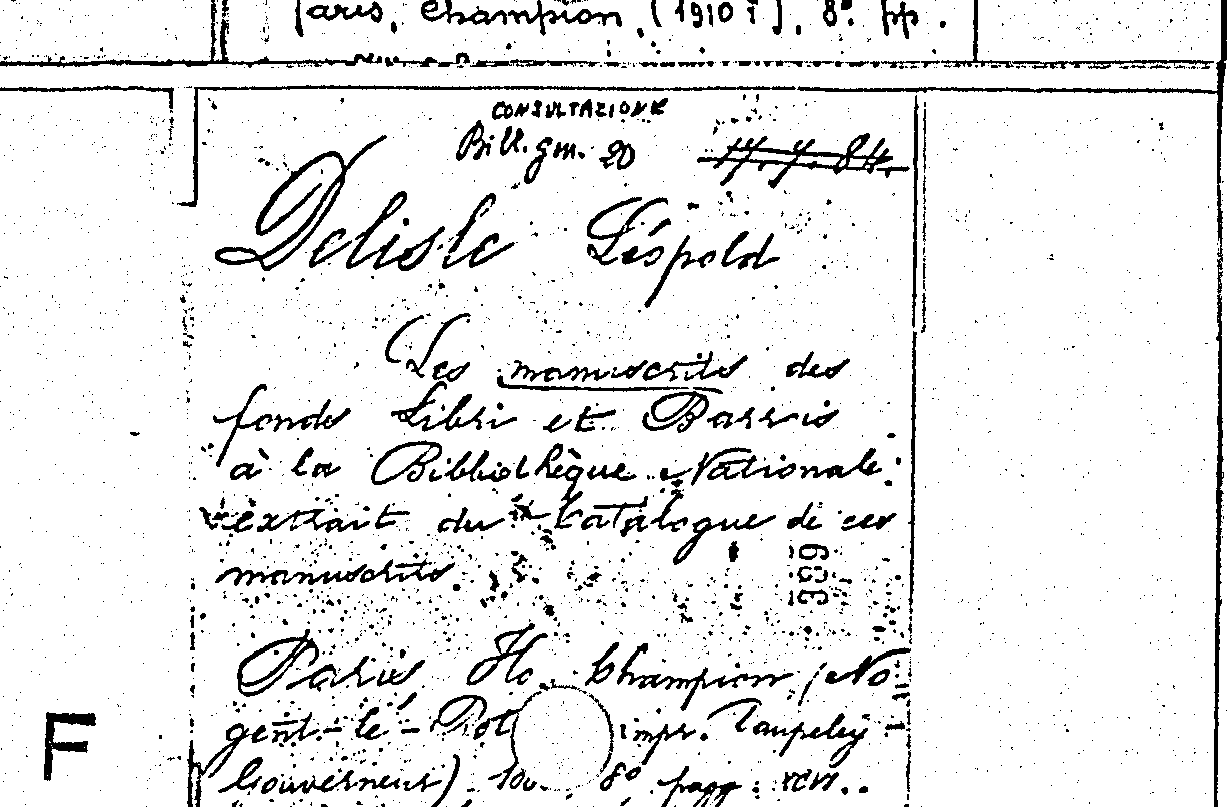 Paris, Champion, (1910?), 8º. pp.
CONSULTAZIONE
Bibl. gm. 20 17.7.84.
Delisle Léopold
Les manuscrits des
fonds Libri et Barrois
à la Bibliothèque Nationale:
extrait du Catalogue de ces
manuscrits.
309
Paris H. Champion, (No
gent-le-Rot impr. Daupeley
Gouverneur) 8º pagg.
F